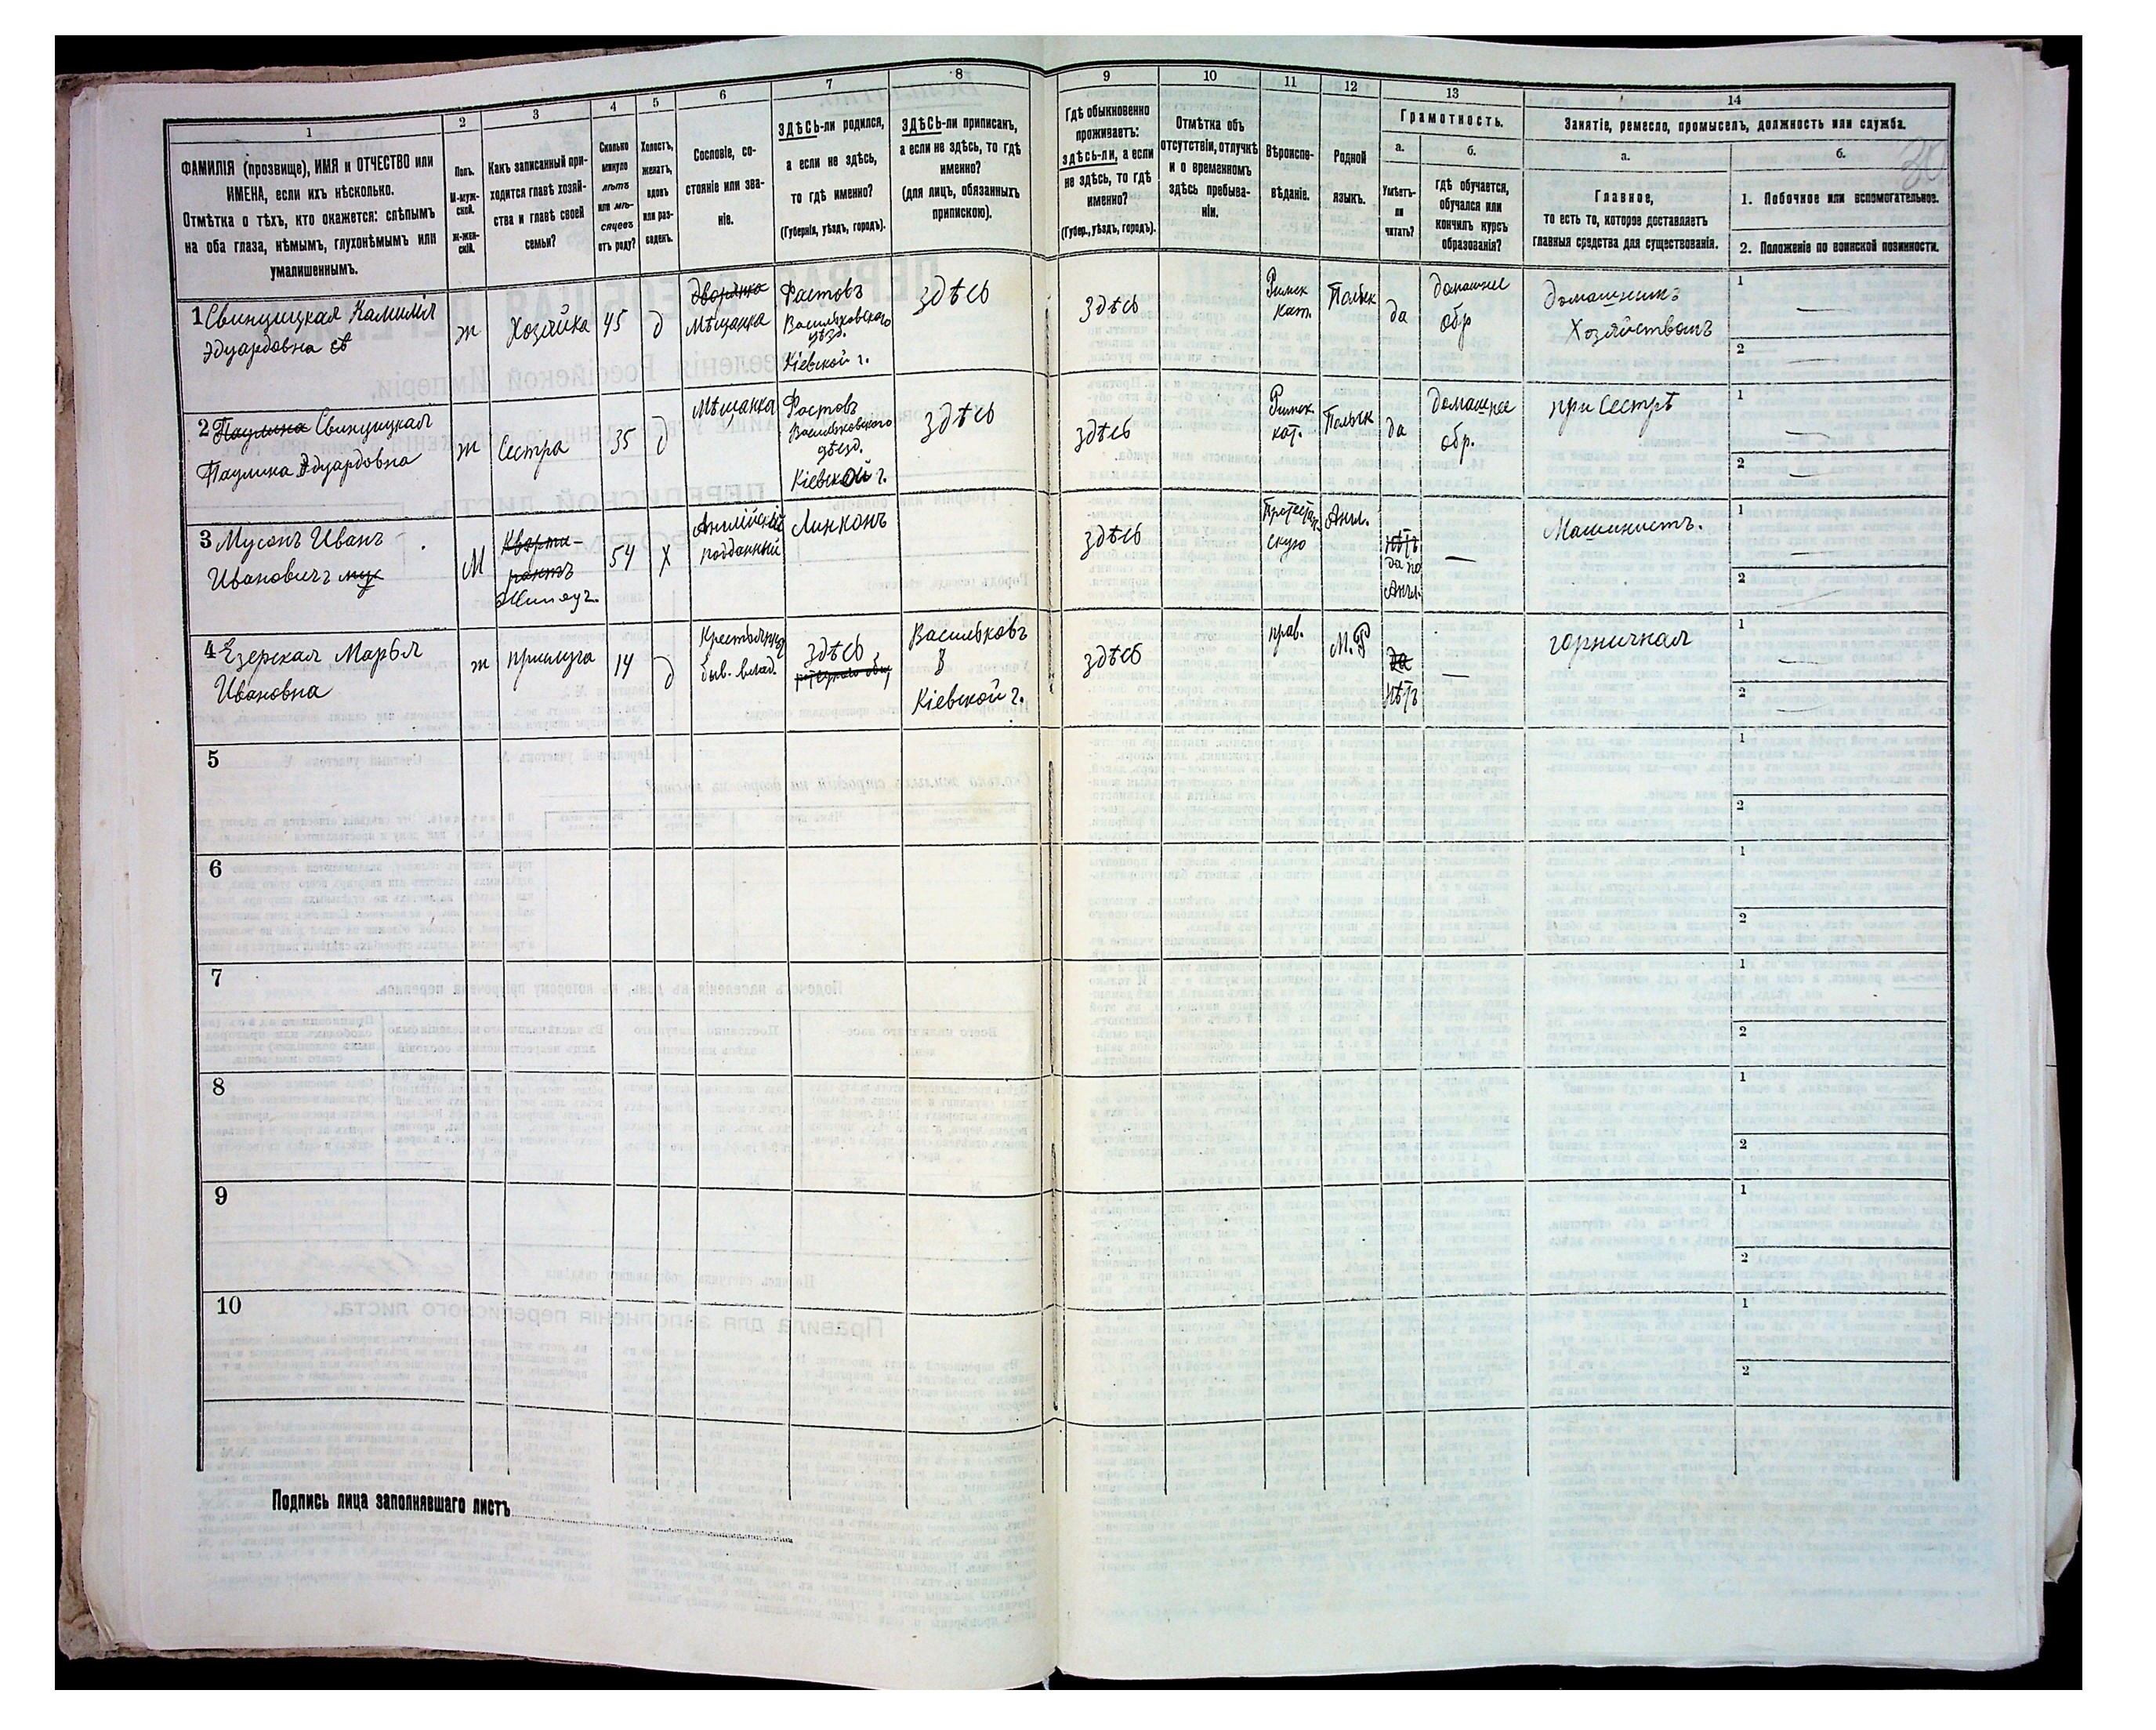 1
2
3
4
5
6
7
8
9
10
11
12
13
14
ФАМИЛІЯ (прозвище), ИМЯ и ОТЧЕСТВО или
ИМЕНА, если ихъ нѣсколько.
Отмѣтка о тѣхъ, кто окажется: слѣпымъ
на оба глаза, нѣмымъ, глухонѣмымъ или
умалишеннымъ.
Полъ.
М-муж-
ской.
Ж-жен-
скій.
Какъ записанный при-
ходится главѣ хозяй-
ства и главѣ своей
семьи?
Сколько
минуло
лѣтъ
или мѣ-
сяцевъ
отъ роду?
Холостъ,
женатъ,
вдовъ
или раз-
веденъ.
Сословіе, со-
стояніе или зва-
ніе.
ЗДѢСЬ-ли родился,
а если не здѣсь,
то гдѣ именно?
(Губернія, уѣздъ, городъ).
ЗДѢСЬ-ли приписанъ,
а если не здѣсь, то гдѣ
именно?
(для лицъ, обязанныхъ
припискою).
Гдѣ обыкновенно
проживаетъ:
здѣсь-ли, а если
не здѣсь, то гдѣ
именно?
(Губер., уѣздъ, городъ).
Отмѣтка объ
отсутствіи, отлучкѣ
и о временномъ
здѣсь пребыва-
ніи.
Вѣроиспо-
вѣданіе.
Родной
языкъ.
Грамотность.
а.
Умѣетъ-
ли
читать?
б.
гдѣ обучается,
обучался или
кончилъ курсъ
образованія?
Занятіе, ремесло, промыселъ, должность или служба.
а.
Главное,
то есть то, которое доставляетъ
главныя средства для существованія.
б.
1. Побочное или вспомогательное.
2. Положеніе по воинской повинности.
30
1 Свинцицкая Камилія
Эдуардовна
ж
Хозяйка
45
д
дворянка
Мѣщанка
Фастовъ
Васильковскаго
уѣзд.
Кіевской г.
здѣсь
здѣсь
Римск
Кат.
Польск
да
домашнее
обр
Домашнимъ
Хозяйствомъ
1
2
2 Паулина Свинцицкая
Паулина Эдуардовна
ж
Сестра
35
д
Мѣщанка
Фастовъ
Васильковскаго
уѣзд.
Кіевской г.
здѣсь
здѣсь
Римск
кат.
Польск
да
домашнее
обр.
при Сестрѣ
1
2
3 Мусонъ Иванъ
Ивановичъ мус
М
Кварти-
рантъ
54
х
Англійскій
подданный
Линконъ
здѣсь
Протестан.
скую
Англ.
нѣтъ
да по
Англ.
—
Машинистъ.
1
2
4 Езерская Марья
Ивановна
ж
прислуга
14
д
Крестьянка
быв. влад.
здѣсь
Васильковъ
у
Кіевской г.
здѣсь
прав.
М.Р
да
нѣтъ
—
горничная
1
2
5
1
2
6
1
2
7
1
2
8
1
2
9
1
2
10
1
2
Подпись лица заполнявшаго листъ